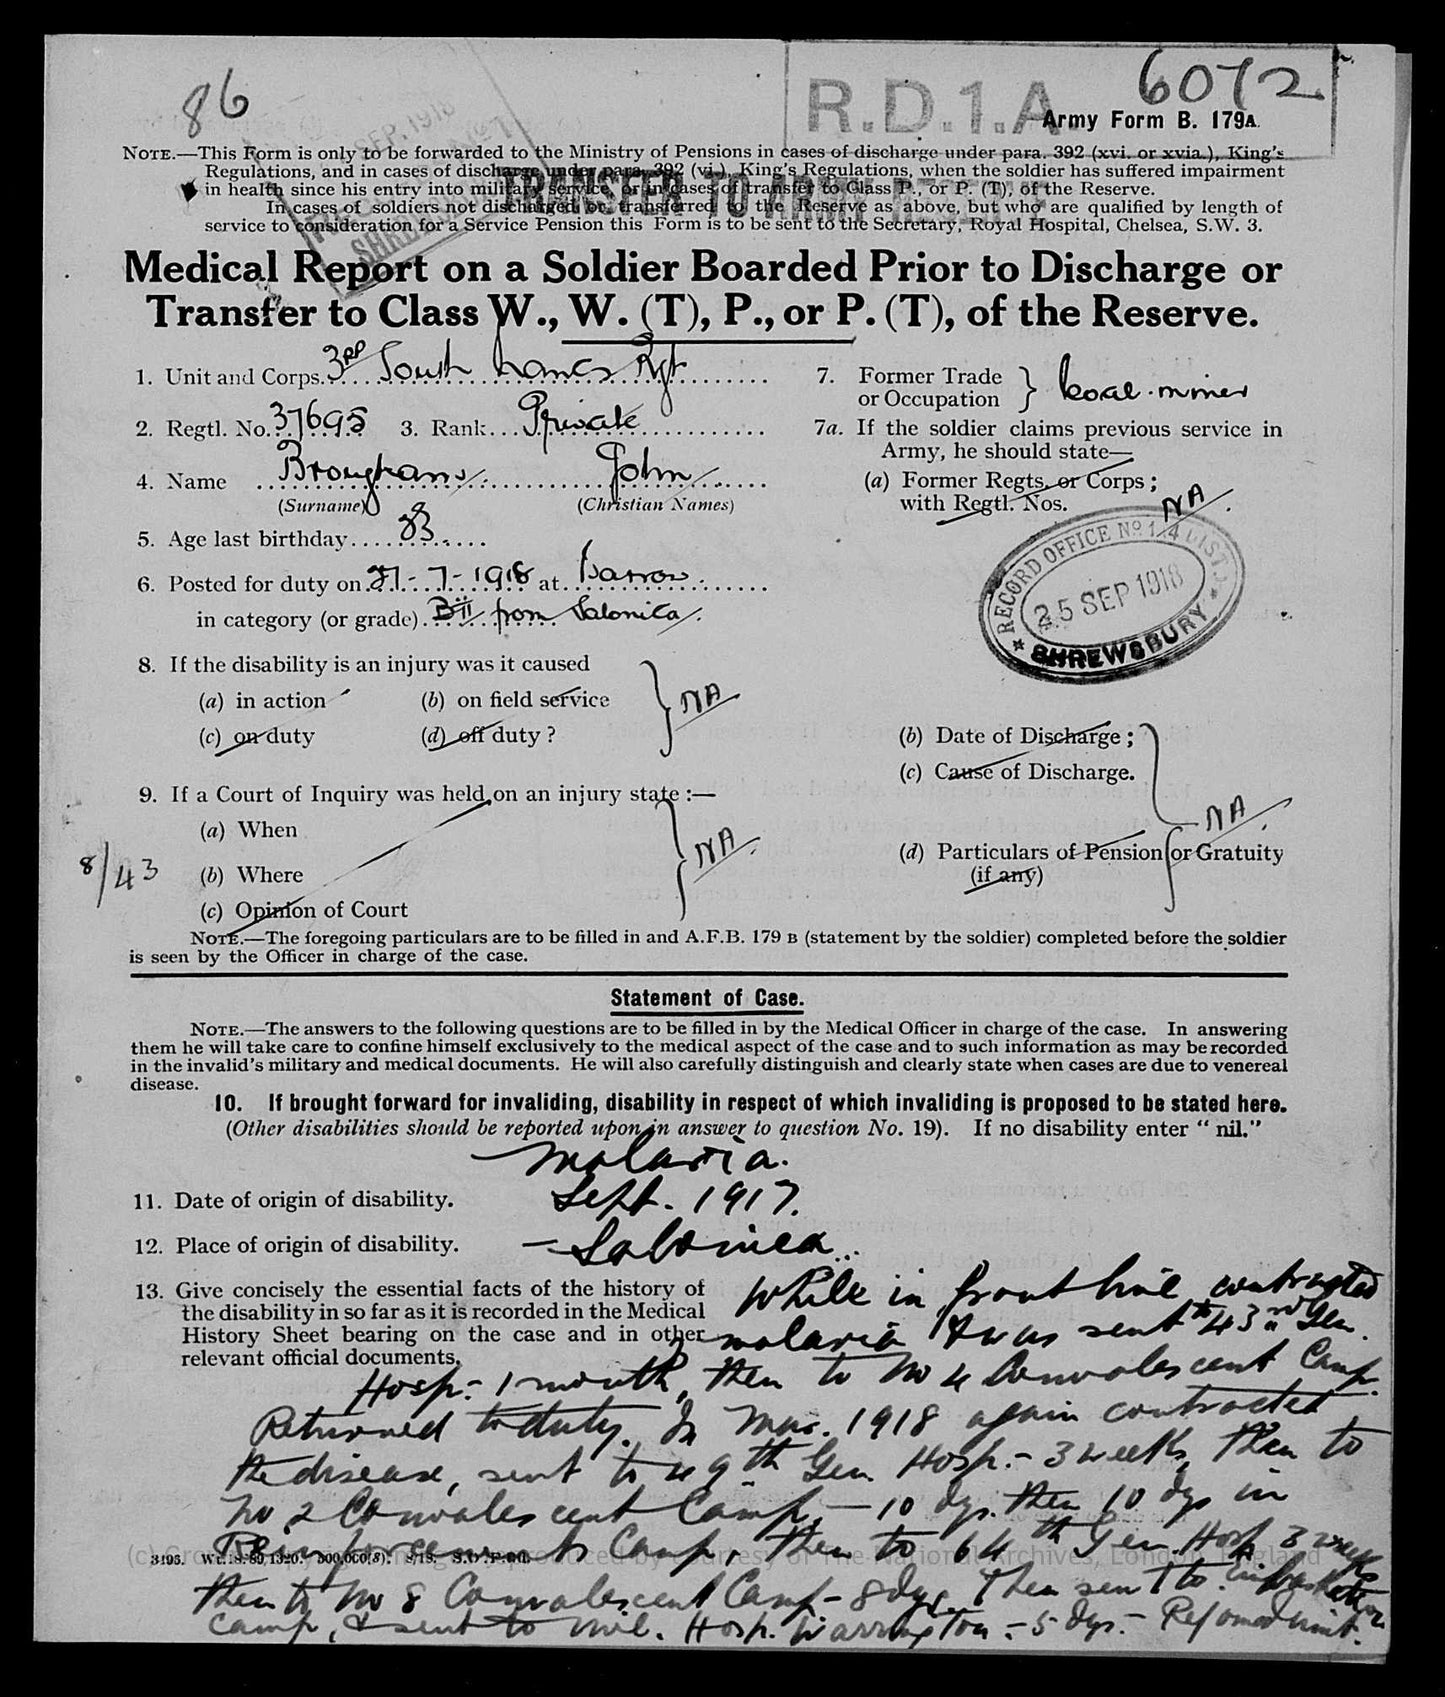 86
6072
R.D.1.A.
Army Form B. 179A.
SEP. 1918
NOTE.—This Form is only to be forwarded to the Ministry of Pensions in cases of discharge under para. 392 (xvi. or xvia.), King's
Regulations, and in cases of discharge under para. 392 (vi.), King's Regulations, when the soldier has suffered impairment
in health since his entry into military service, or in cases of transfer to Class P., or P. (T), of the Reserve.
TRANSFER TO ARMY RESERVE
In cases of soldiers not discharged or transferred to the Reserve as above, but who are qualified by length of
service to consideration for a Service Pension this Form is to be sent to the Secretary, Royal Hospital, Chelsea, S.W. 3.
Medical Report on a Soldier Boarded Prior to Discharge or
Transfer to Class W., W. (T), P., or P. (T), of the Reserve.
1. Unit and Corps. 3RD South Lancs Rgt
7. Former Trade or Occupation } Coal-miner
2. Regtl. No. 37695 3. Rank Private
7a. If the soldier claims previous service in
Army, he should state—
4. Name Brougham John
(Surname) (Christian Names)
(a) Former Regts. or Corps;
with Regtl. Nos. NA
5. Age last birthday 33
RECORD OFFICE No 1/4 DIST.
25 SEP 1918
SHREWSBURY
6. Posted for duty on 27-7-1918 at Barrow
in category (or grade) Bii from Salonica
8. If the disability is an injury was it caused
(a) in action (b) on field service
(c) on duty (d) off duty?
NA
(b) Date of Discharge;
(c) Cause of Discharge.
9. If a Court of Inquiry was held on an injury state:—
(a) When
NA
(d) Particulars of Pension or Gratuity
(if any)
8/43
(b) Where
NA
(c) Opinion of Court
NOTE.—The foregoing particulars are to be filled in and A.F.B. 179 B (statement by the soldier) completed before the soldier
is seen by the Officer in charge of the case.
Statement of Case.
NOTE.—The answers to the following questions are to be filled in by the Medical Officer in charge of the case. In answering
them he will take care to confine himself exclusively to the medical aspect of the case and to such information as may be recorded
in the invalid's military and medical documents. He will also carefully distinguish and clearly state when cases are due to venereal
disease.
10. If brought forward for invaliding, disability in respect of which invaliding is proposed to be stated here.
(Other disabilities should be reported upon in answer to question No. 19). If no disability enter "nil."
malaria.
11. Date of origin of disability. Sept. 1917.
12. Place of origin of disability. — Salonica
13. Give concisely the essential facts of the history of
the disability in so far as it is recorded in the Medical
History Sheet bearing on the case and in other
relevant official documents.
While in front line contracted
malaria & was sent to 43rd Gen.
Hosp.- 1 month, then to No 4 Convalescent Camp.
Returned to duty. In Mar. 1918 again contracted
the disease, sent to 49th Gen Hosp.- 3 weeks, then to
No 2 Convalescent Camp, — 10 dys. then 10 dys in
Reinforcements Camp, then to 64th Gen. Hosp 3 weeks
3495. Wt. 500,000(8). 8/18.
(c) Crown copyright images reproduced by courtesy of The National Archives, London, England
then to No 8 Convalescent Camp - 8 dys. Then sent to Embarkation
Camp, & sent to Mil. Hosp. Warrington - 5 dys. - Rejoined unit.